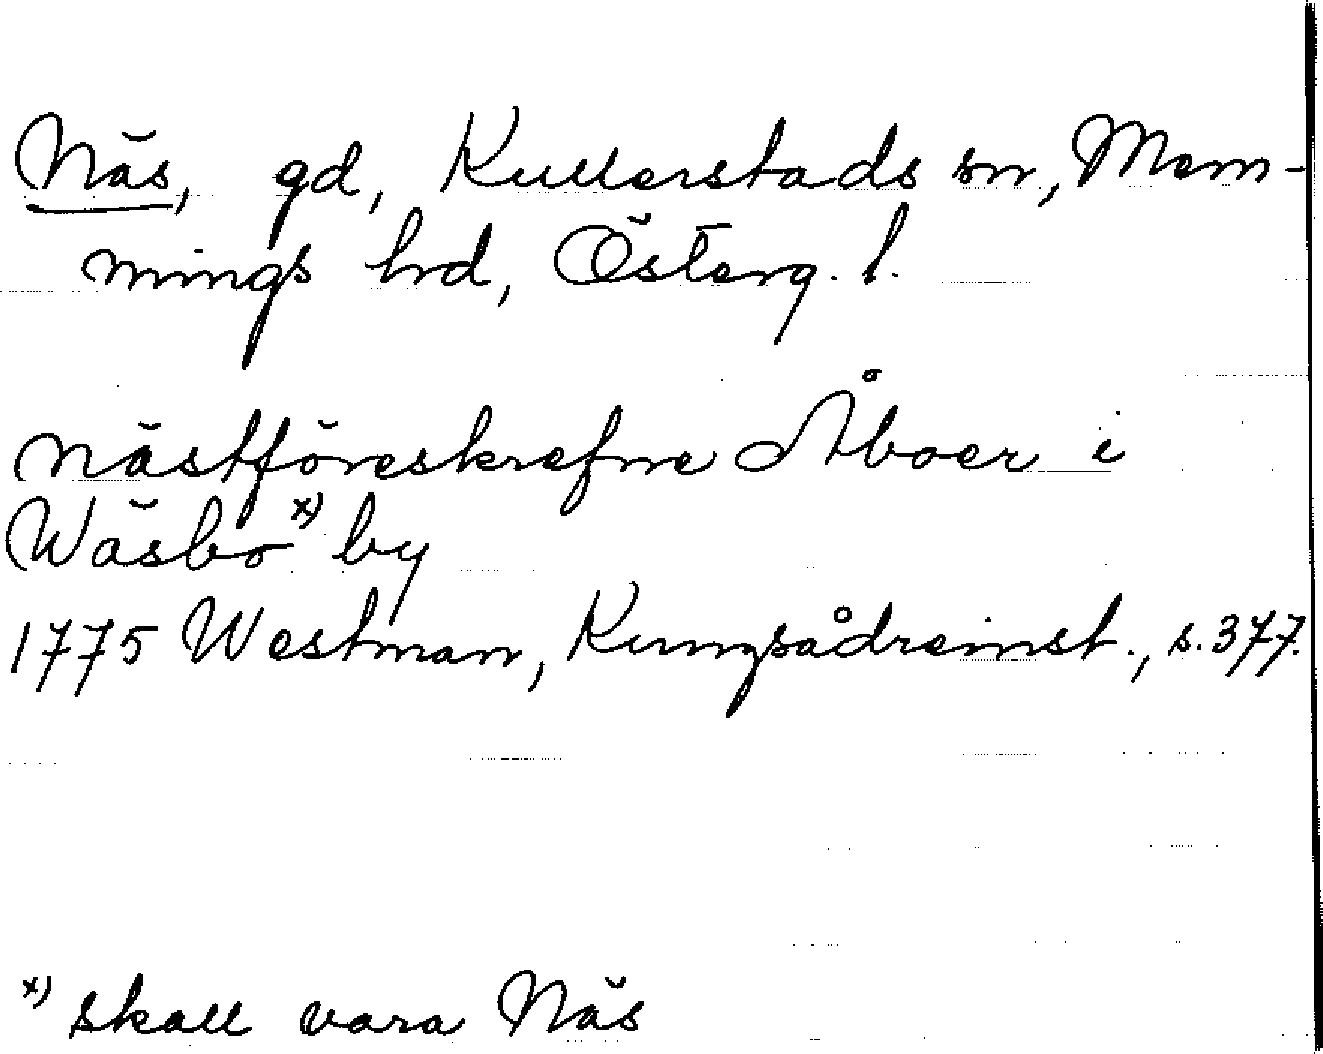 Näs, gd, Kullerstads sn, Mem-
mings hd, Österg. l.
nästföreskrefne Åboer i
Wäsbo x) by
1775 Westman, Kungsådreinst., s. 377.
x) skall vara Näs